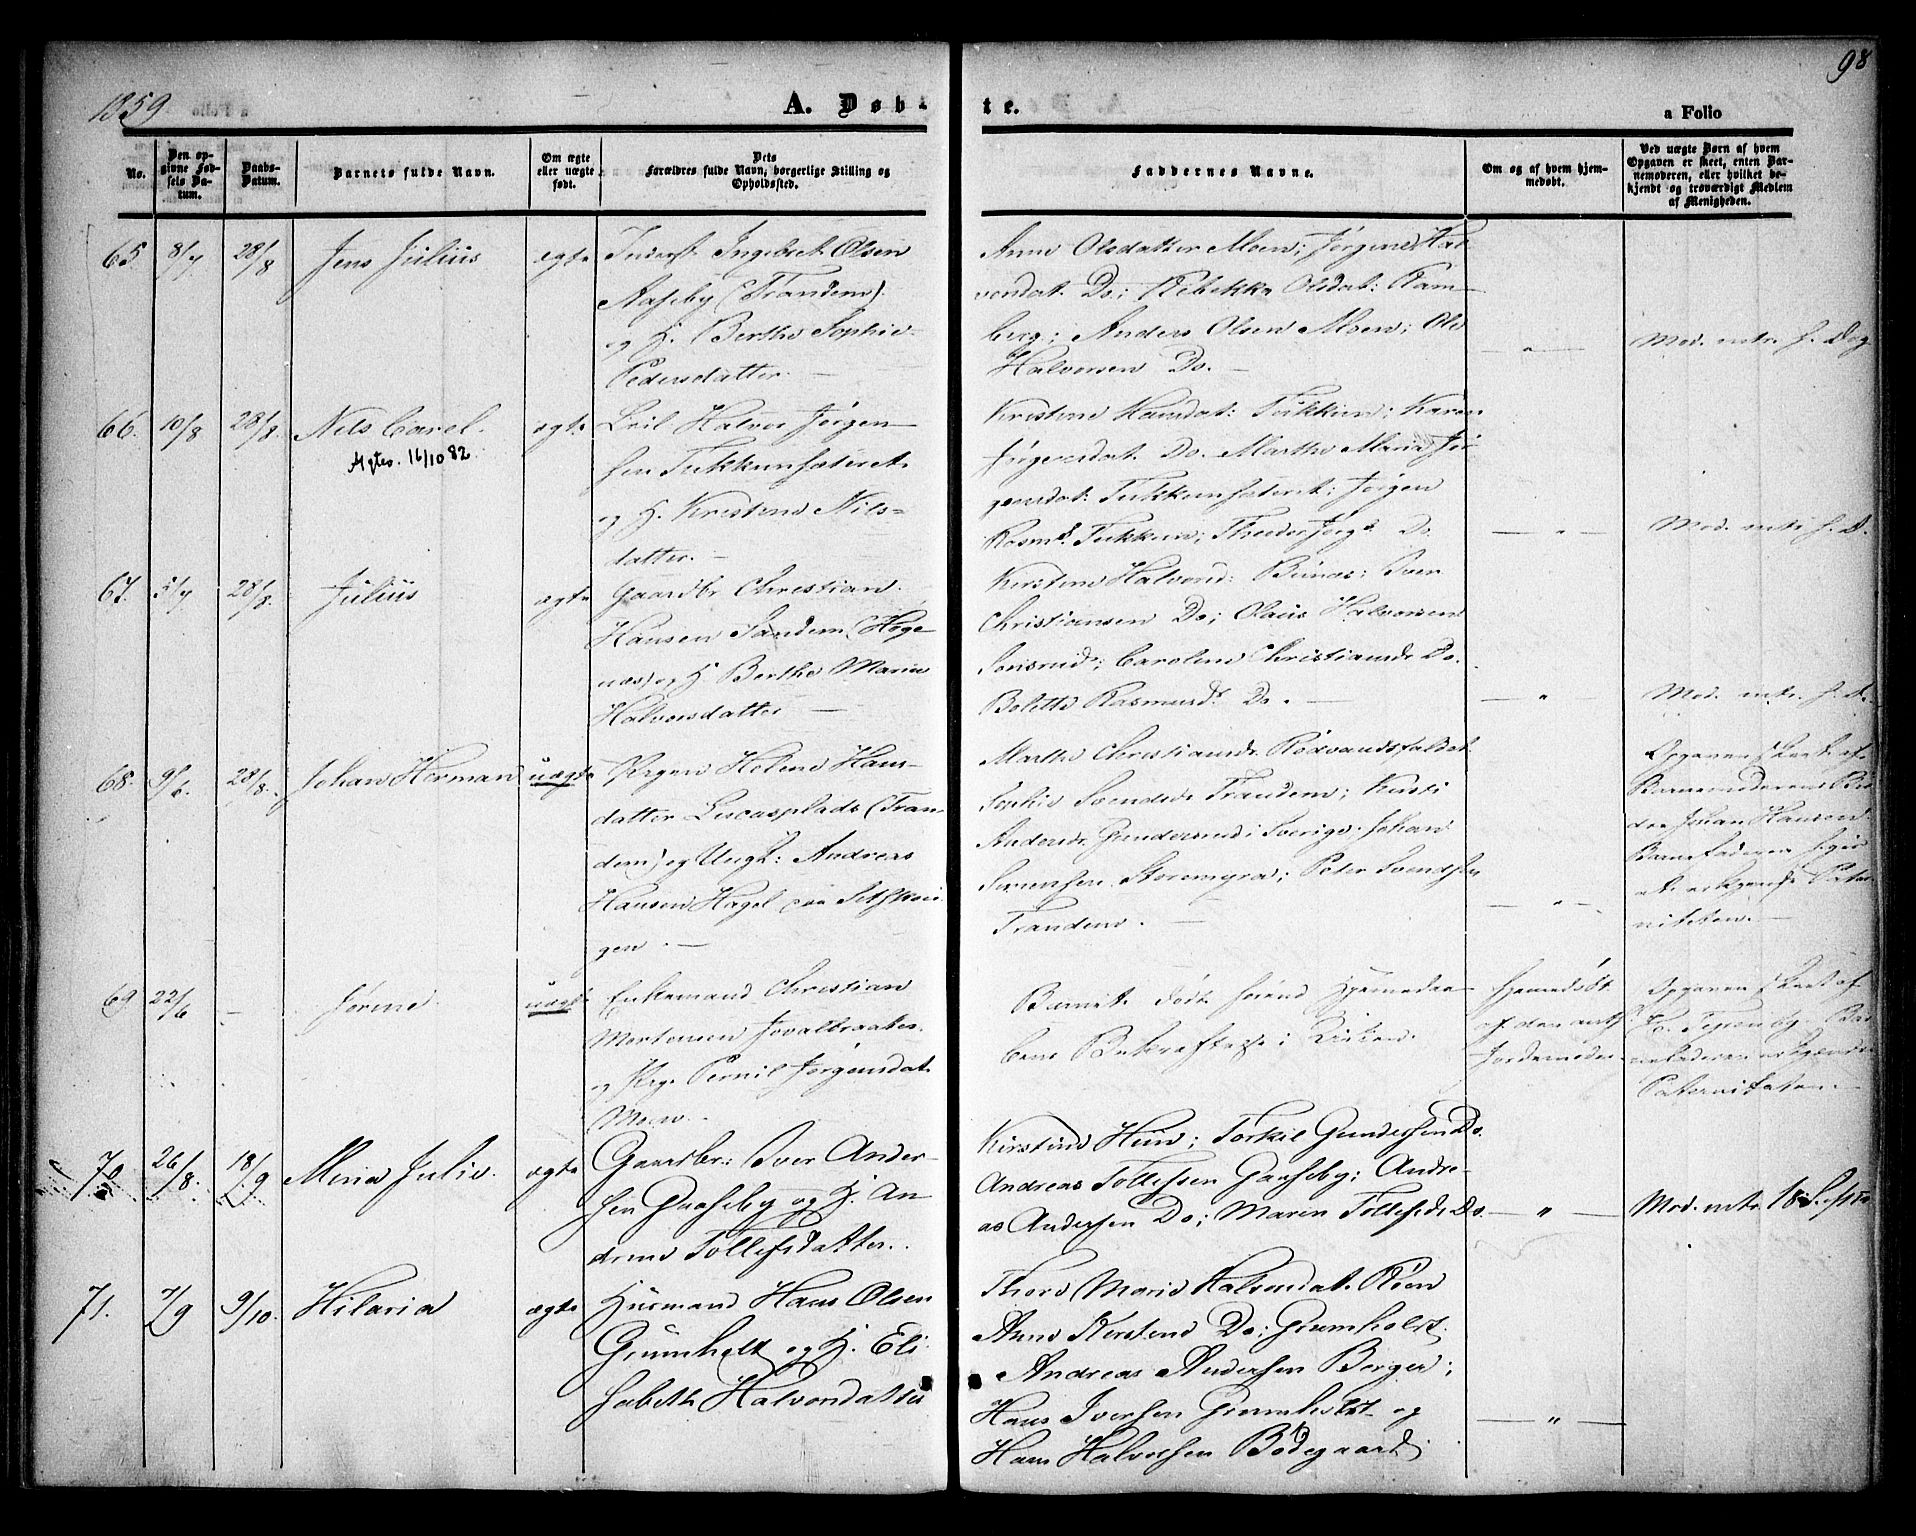 1859
98
A. Døb-
te.
a Folio
No.
Den op-
givne Fød-
sels Da-
tum.
Daabs-
Datum.
Barnets fulde Navn.
Om ægte
eller uægte
født.
Dets
Forældres fulde Navn, borgerlige Stilling og
Opholdssted.
Faddernes Navne.
Om og af hvem hjem-
medøbt.
Ved uægte Børn af hvem
Opgaven er skeet, enten Bar-
nemoderen, eller hvilket be-
kjendt og troværdigt Medlem
af Menigheden.
65 8/7 28/8 Jens Julius ægte
Inderst Ingebret Olsen
Aaseby (Trandem)
og H. Berthe Sophie
Pedersdatter. —
Anne Olsdatter Moen; Jørgine Hal-
vorsdat. Do; Rebekka Olsdat: Ram-
berg; Anders Olsen Moen; Ole
Halvorsen Do. —
— " — Mod. intr. s. Dag
66. 10/8 28/8. Nils Carel.
Agtes. 16/10 82
ægte
Leil Halvor Jørgen-
sen
og H. Kirstine Nils=
datter. —
Kirstine Hansdat: Karen
Jørgensdat. Do. Marthe Maria Jør-
gensdat: Jørgen
Do.
— " — Mod. intr s. D.
67. 5/7 28/8. Julius ægte
Gaardbr Christian
Hansen Sandem (Høge-
næs) og H Berthe Marie
Halvorsdatter —
Kirstine Halvorsd: Sven
Christiansen Do; Olaus Halvorsen
Caroline Christiansdr Do.
Bolette Rasmusdr Do. —
— " — Mod. intr. s. D.
68. 9/6. 28/8. Johan Herman uægte
Pigen Helene Hans-
datter Lucasplads (Tran-
dem) og Ungk: Andreas
Hansen Hagel paa
gen. —
Marthe Christiansdr
Sophie Svendsdr Trandem; Kirsti
Andersdr i Sverige. Johan
Sørensen Storemyra; Peter Svendsen
Trandem. —
— " —
Opgaven skeet af
Barnemoderens Bro-
der Johan Hansen
Barnefaderen siges
at erkjende Pater-
niteten. —
69 22/6 — Jørine uægte
Enkemand Christian
Mortensen
og Pige Pernil Jørgensdat.
Moen —
Barnet døde førend Hjemmedaa-
bens Bekræftelse i Kirken.
Hjemmedøbt
af den ants
Jordemoder
Opgaven skeet af
Bar-
nefaderen erkjender
Paterniteten. —
70 26/8. 18/9 Mina Julie. ægte
Gaardbr: Iver Ander-
sen Gaaseby og H. An-
drine Tollefsdatter.
Kirstine Torkil Gundersen Do.
Andreas Tollefsen Gaaseby; Andre-
as Andersen Do; Maren Tollefsdr Do.
— " — Mod. intr. 18 Septbr
71. 7/9 9/10. Hilaria ægte
Husmand Hans Olsen
Grumholt og H. Eli-
sabeth Halvorsdatter
Thore Marie Halvorsdat. Røen
Anne Kirstine Do; Grumholt;
Andreas Andersen Berger;
Hans Iversen Grumholt og
Hans Halvorsen Bødegaard;
— " —